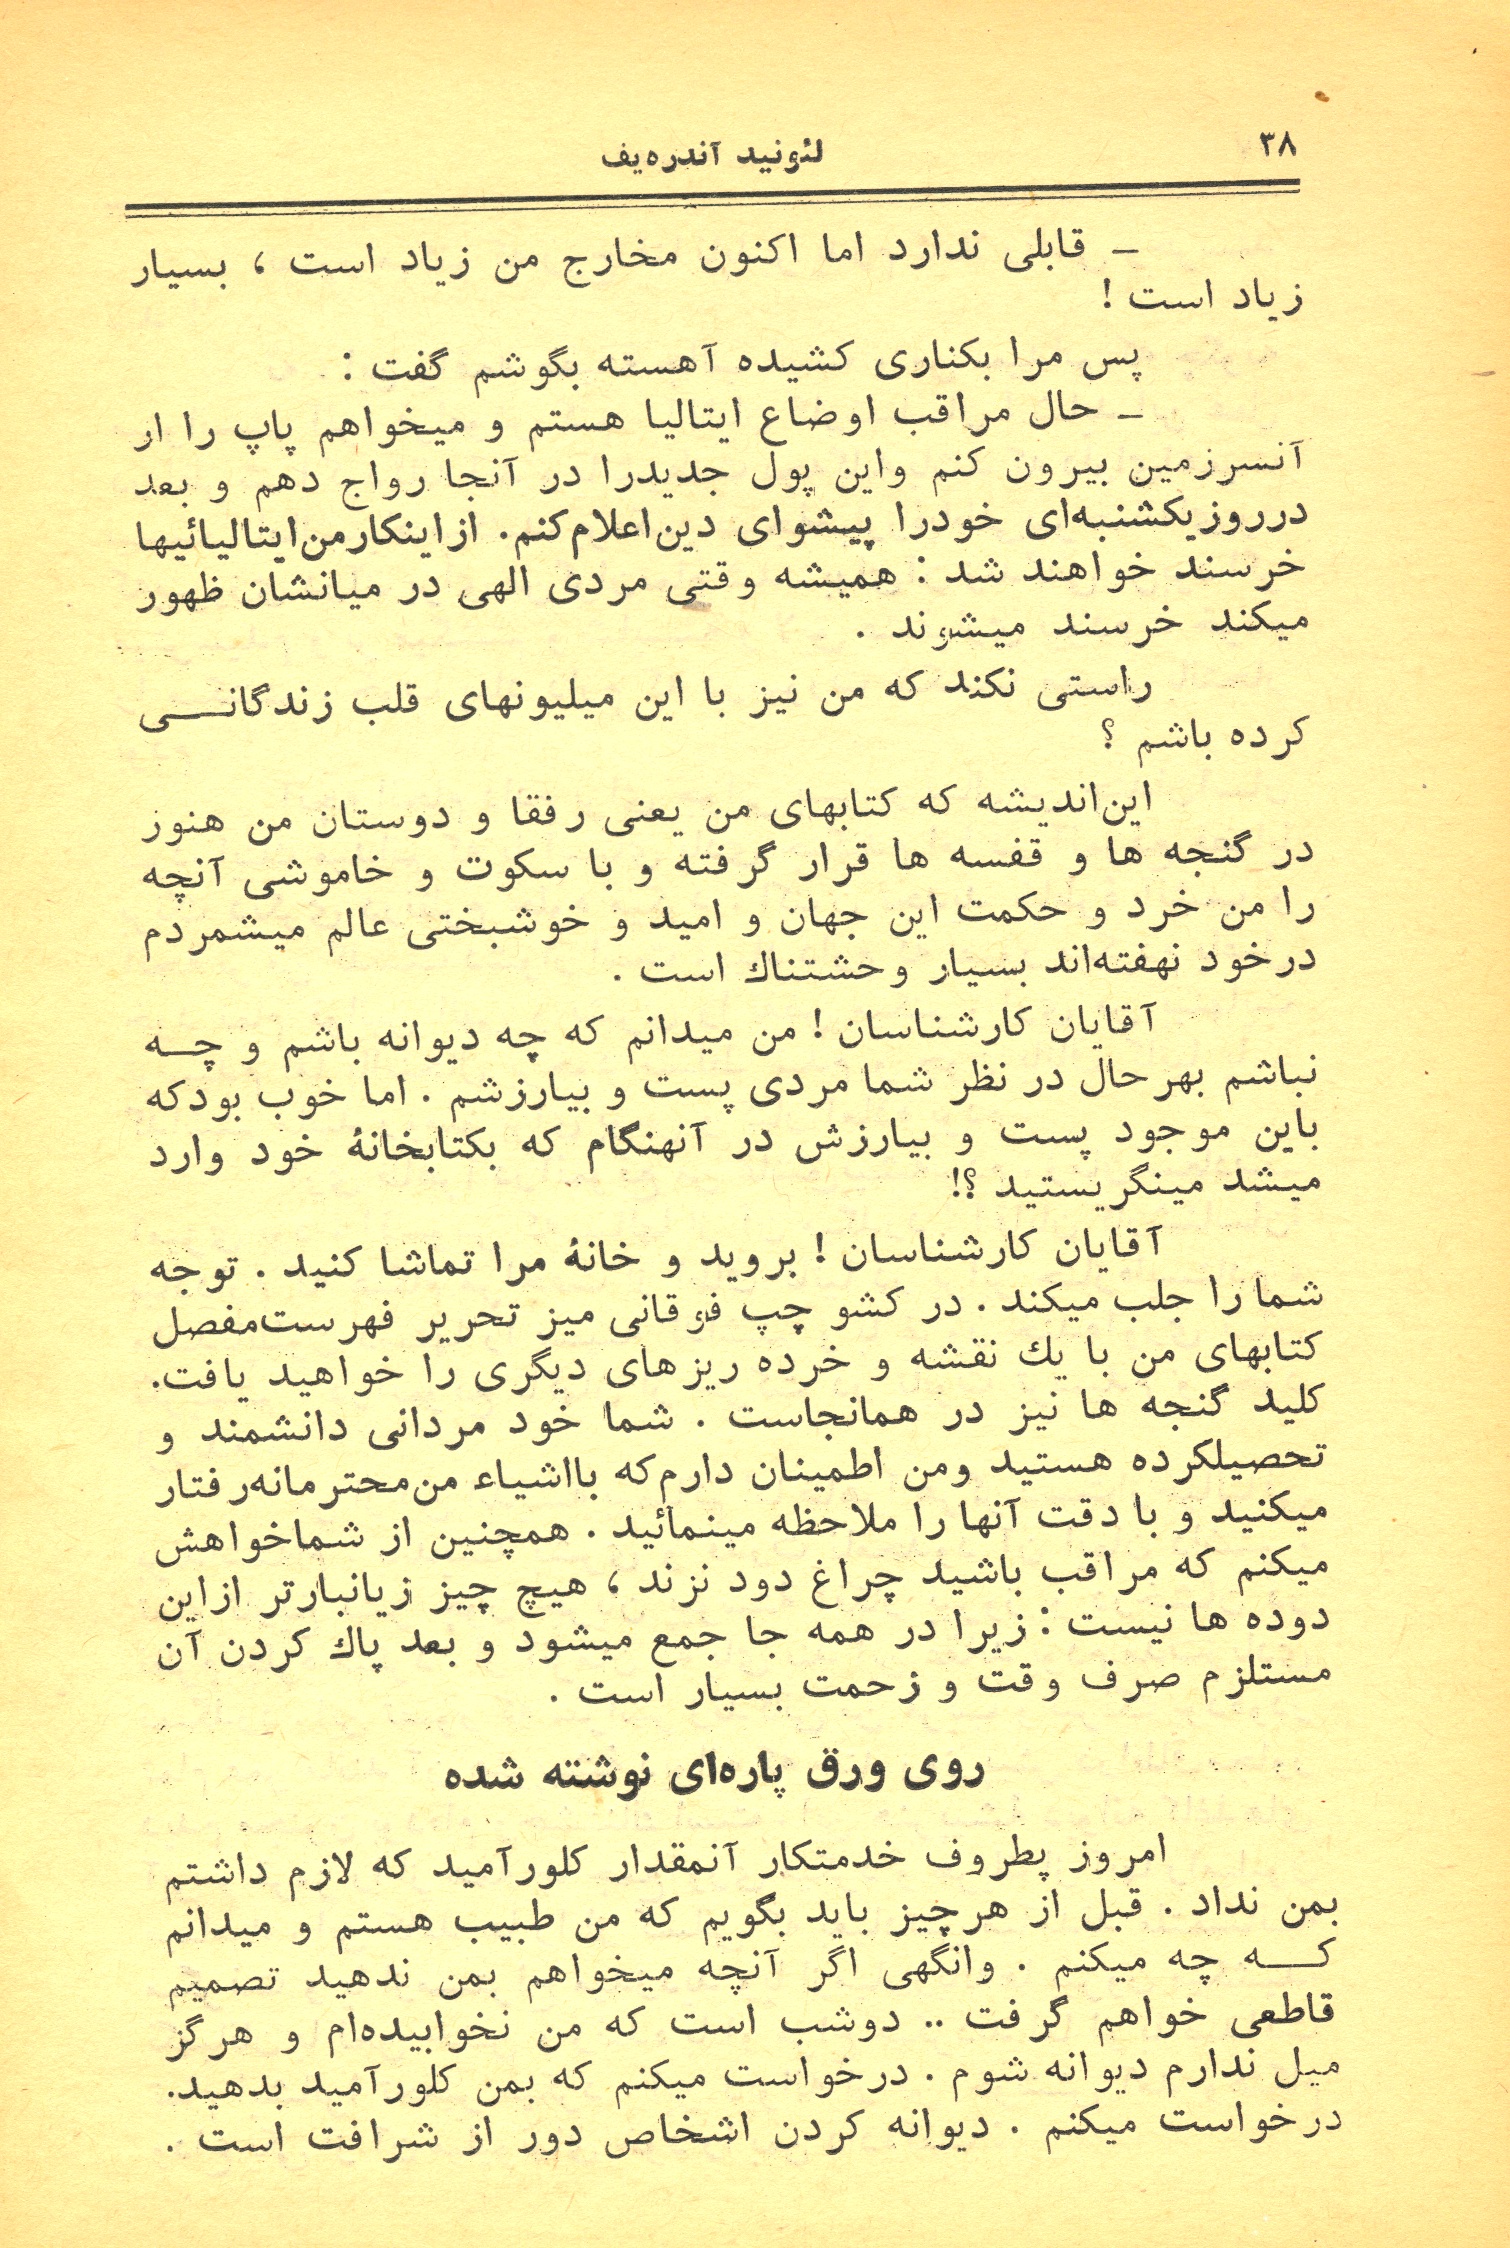 ۳۸
لئونید آندره‌یف
– قابلی ندارد اما اکنون مخارج من زیاد است ، بسیار
زیاد است !
پس مرا بکناری کشیده آهسته بگوشم گفت :
– حال مراقب اوضاع ایتالیا هستم و میخواهم پاپ را ار
آنسرزمین بیرون کنم واین پول جدیدرا در آنجا رواج دهم و بعد
درروزیکشنبه‌ای خودرا پیشوای دین‌اعلام‌کنم. ازاینکارمن‌ایتالیائیها
خرسند خواهند شد : همیشه وقتی مردی الهی در میانشان ظهور
میکند خرسند میشوند .
راستی نکند که من نیز با این میلیونهای قلب زندگانــی
کرده باشم ؟
این‌اندیشه که کتابهای من یعنی رفقا و دوستان من هنوز
در گنجه ها و قفسه ها قرار گرفته و با سکوت و خاموشی آنچه
را من خرد و حکمت این جهان و امید و خوشبختی عالم میشمردم
درخود نهفته‌اند بسیار وحشتناك است .
آقایان کارشناسان ! من میدانم که چه دیوانه باشم و چــه
نباشم بهرحال در نظر شما مردی پست و بیارزشم . اما خوب بودکه
باین موجود پست و بیارزش در آنهنگام که بکتابخانهٔ خود وارد
میشد مینگریستید ؟!
آقایان کارشناسان ! بروید و خانهٔ مرا تماشا کنید . توجه
شما را جلب میکند . در کشو چپ فوقانی میز تحریر فهرست‌مفصل
کتابهای من با یك نقشه و خرده ریزهای دیگری را خواهید یافت.
کلید گنجه ها نیز در همانجاست . شما خود مردانی دانشمند و
تحصیلکرده هستید ومن اطمینان دارم‌که بااشیاء من‌محترمانه‌رفتار
میکنید و با دقت آنها را ملاحظه مینمائید . همچنین از شماخواهش
میکنم که مراقب باشید چراغ دود نزند ، هیچ چیز زیانبارتر ازاین
دوده ها نیست : زیرا در همه جا جمع میشود و بعد پاك کردن آن
مستلزم صرف وقت و زحمت بسیار است .
روی ورق پاره‌ای نوشته شده
امروز پطروف خدمتکار آنمقدار کلورآمید که لازم داشتم
بمن نداد . قبل از هرچیز باید بگویم که من طبیب هستم و میدانم
کــه چه میکنم . وانگهی اگر آنچه میخواهم بمن ندهید تصمیم
قاطعی خواهم گرفت .. دوشب است که من نخوابیده‌ام و هرگز
میل ندارم دیوانه شوم . درخواست میکنم که بمن کلورآمید بدهید.
درخواست میکنم . دیوانه کردن اشخاص دور از شرافت است .